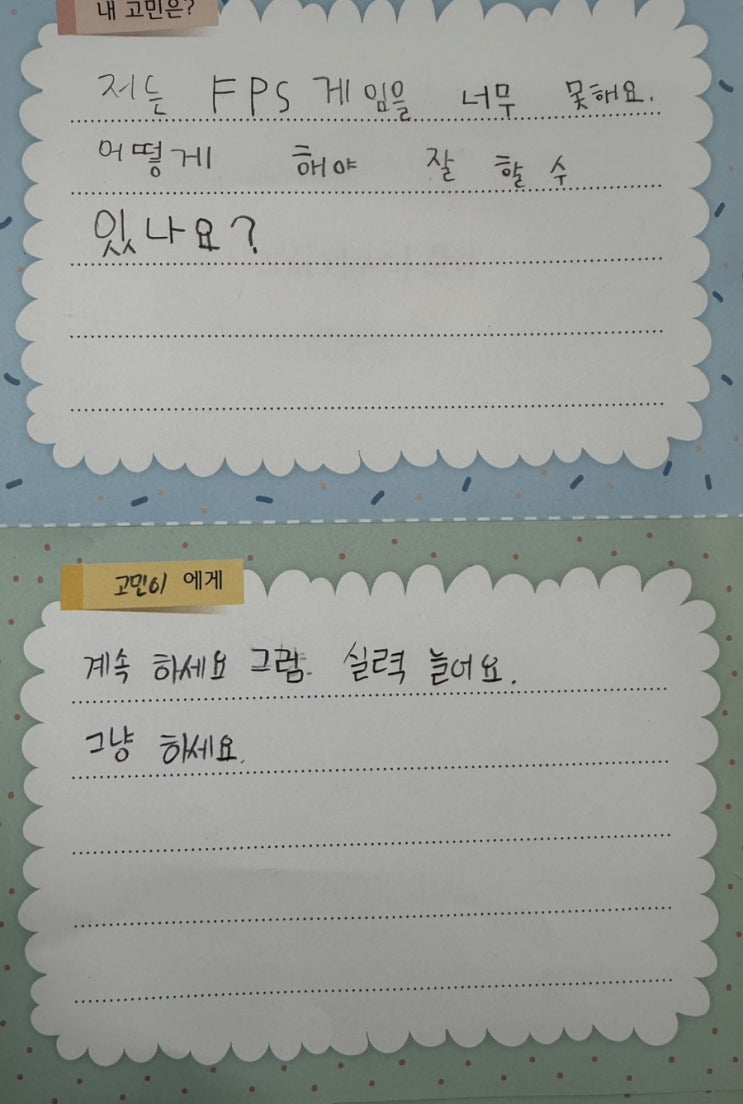 내 고민은?
저는 FPS 게임을 너무 못해요.
어떻게 해야 잘 할 수
있나요?
고민이 에게
계속 하세요 그럼 실력 늘어요.
그냥 하세요.